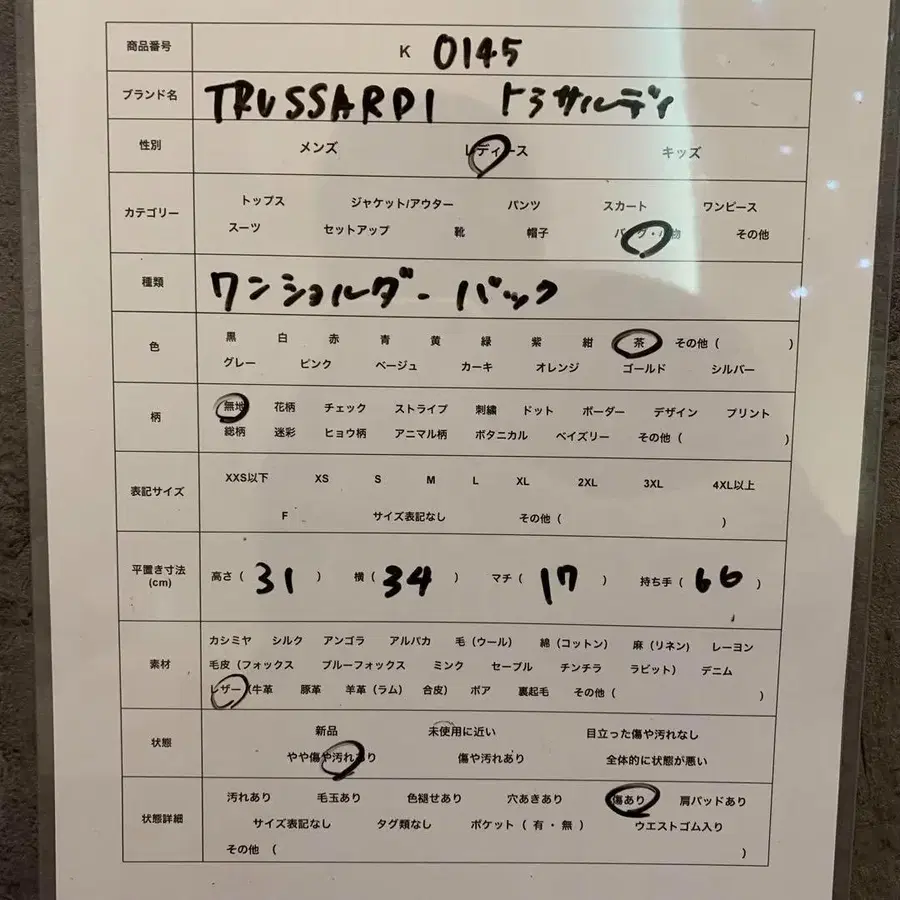 商品番号 K 0145
ブランド名 TRUSSARDI トラサルディ
性別 メンズ レディース キッズ
カテゴリー トップス ジャケット/アウター パンツ スカート ワンピース
スーツ セットアップ 靴 帽子 バッグ・小物 その他
種類 ワンショルダーバック
色 黒 白 赤 青 黄 緑 紫 紺 茶 その他 ( )
グレー ピンク ベージュ カーキ オレンジ ゴールド シルバー
柄 無地 花柄 チェック ストライプ 刺繍 ドット ボーダー デザイン プリント
総柄 迷彩 ヒョウ柄 アニマル柄 ボタニカル ペイズリー その他 ( )
表記サイズ XXS以下 XS S M L XL 2XL 3XL 4XL以上
F サイズ表記なし その他 ( )
平置き寸法 (cm) 高さ ( 31 ) 横 ( 34 ) マチ ( 17 ) 持ち手 ( 66 )
素材 カシミヤ シルク アンゴラ アルパカ 毛 (ウール) 綿 (コットン) 麻 (リネン) レーヨン
毛皮 (フォックス ブルーフォックス ミンク セーブル チンチラ ラビット) デニム
レザー (牛革 豚革 羊革 (ラム) 合皮) ボア 裏起毛 その他 ( )
状態 新品 未使用に近い 目立った傷や汚れなし
やや傷や汚れあり 傷や汚れあり 全体的に状態が悪い
状態詳細 汚れあり 毛玉あり 色褪せあり 穴あきあり 傷あり 肩パッドあり
サイズ表記なし タグ類なし ポケット ( 有・無 ) ウエストゴム入り
その他 ( )